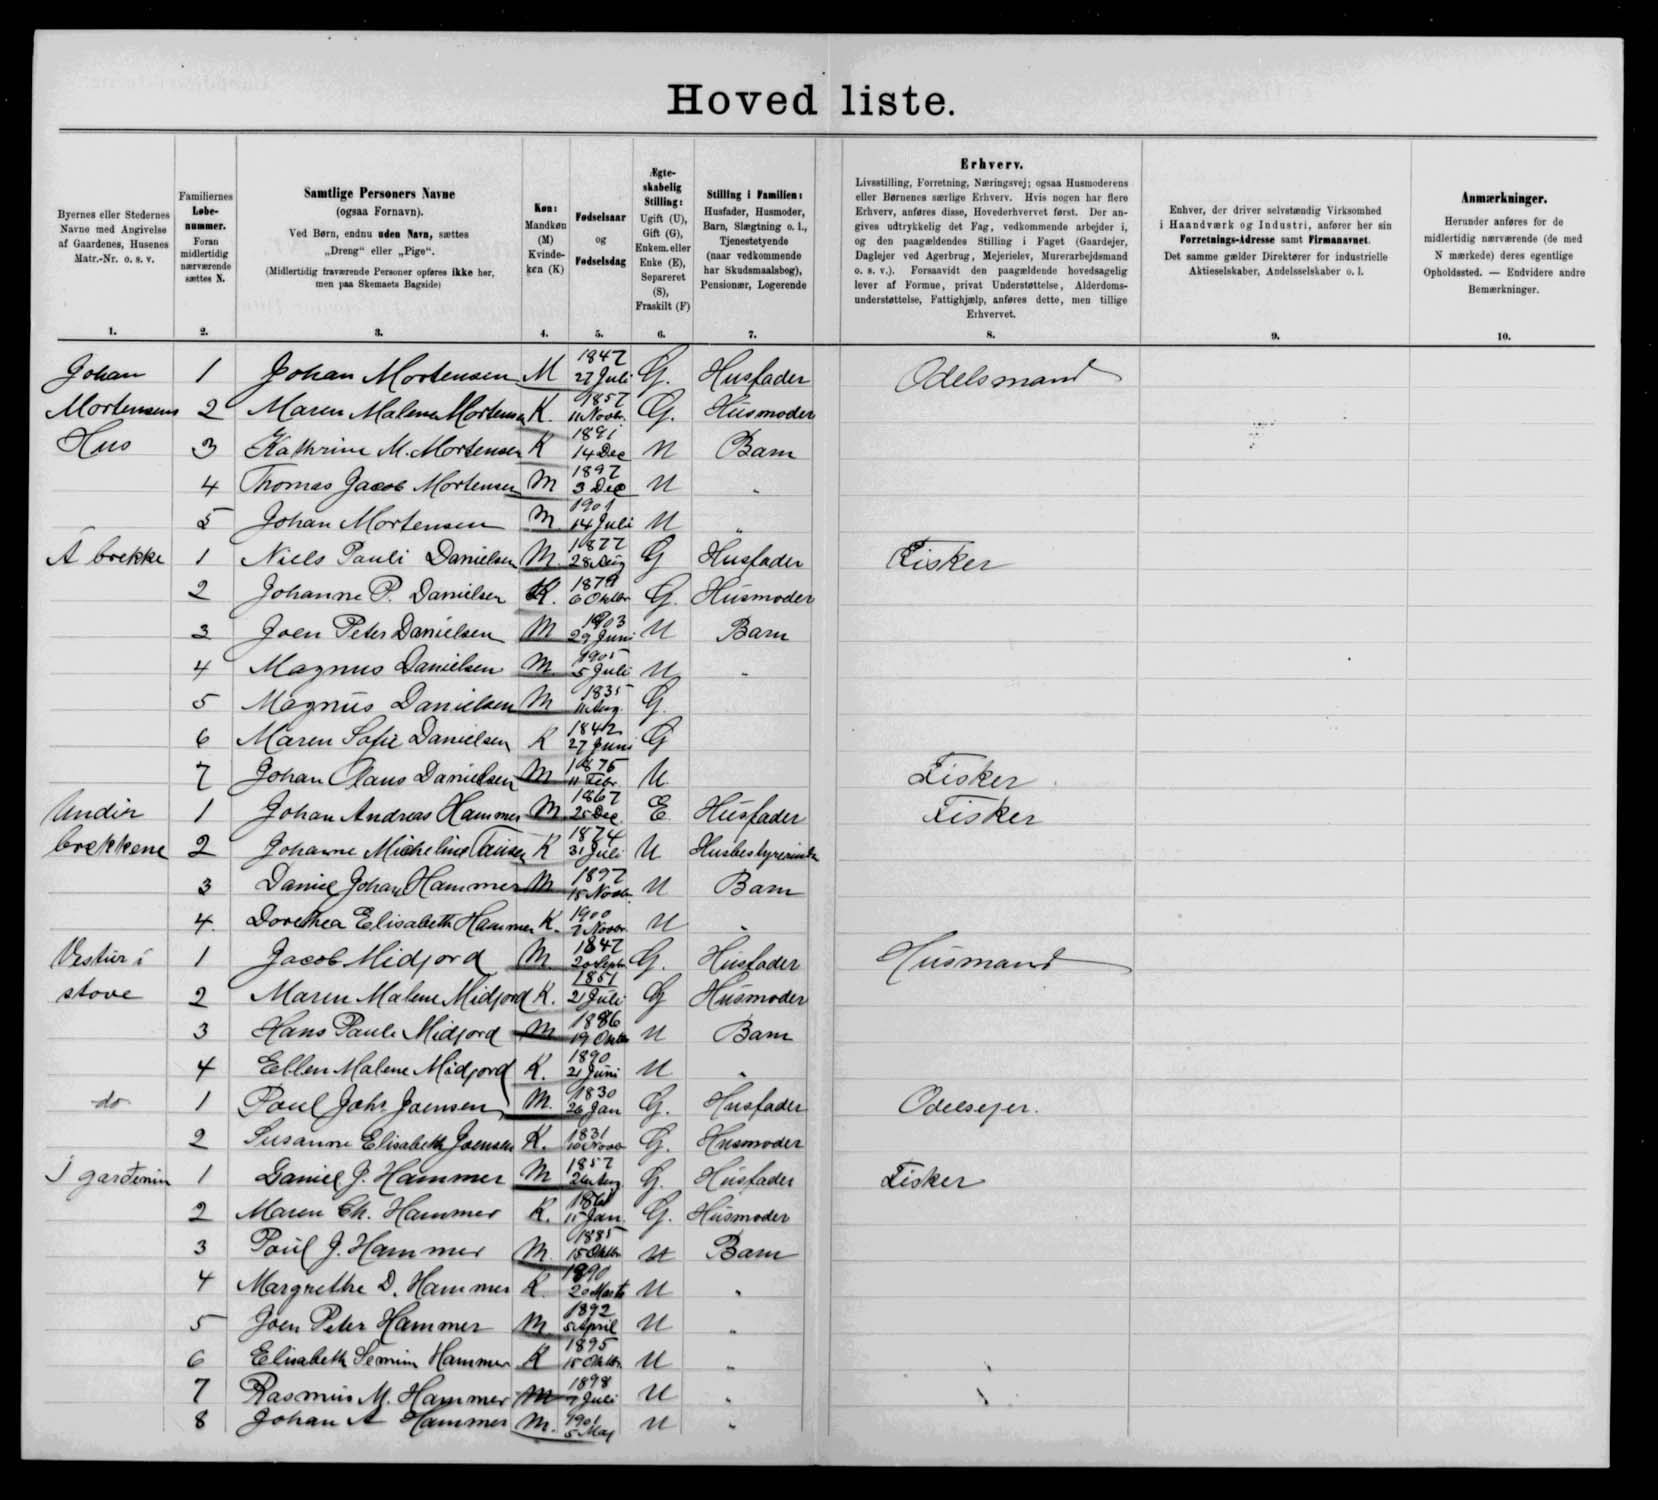 Hoved liste.
Byernes eller Stedernes Navne med Angivelse af Gaardenes, Husenes Matr.-Nr. o. s. v.
Familiernes Løbe-nummer. Foran midlertidig nærværende sættes N.
Samtlige Personers Navne (ogsaa Fornavn). Ved Børn, endnu uden Navn, sættes „Dreng“ eller „Pige“. (Midlertidig fraværende Personer opføres ikke her, men paa Skemaets Bagside)
Køn: Mandkøn (M) Kvinde-køn (K)
Fødselsaar og Fødselsdag
Ægte-skabelig Stilling: Ugift (U), Gift (G), Enkem. eller Enke (E), Separeret (S), Fraskilt (F)
Stilling i Familien: Husfader, Husmoder, Barn, Slægtning o. l., Tjenestetyende (naar vedkommende har Skudsmaalsbog), Pensionær, Logerende
Erhverv.
Livsstilling, Forretning, Næringsvej; ogsaa Husmoderens eller Børnenes særlige Erhverv. Hvis nogen har flere Erhverv, anføres disse, Hovederhvervet først. Der angives udtrykkelig det Fag, vedkommende arbejder i, og den paagældendes Stilling i Faget (Gaardejer, Daglejer ved Agerbrug, Mejerielev, Murerarbejdsmand o. s. v.). Forsaavidt den paagældende hovedsagelig lever af Formue, privat Understøttelse, Alderdoms-understøttelse, Fattighjælp, anføres dette, men tillige Erhvervet.
Enhver, der driver selvstændig Virksomhed i Haandværk og Industri, anfører her sin Forretnings-Adresse samt Firmanavnet. Det samme gælder Direktører for industrielle Aktieselskaber, Andelsselskaber o. l.
Anmærkninger.
Herunder anføres for de midlertidig nærværende (de med N mærkede) deres egentlige Opholdssted. — Endvidere andre Bemærkninger.
1. 2. 3. 4. 5. 6. 7. 8. 9. 10.
Johan 1 Johan Mortensen M 1847 27 Juli G. Husfader Odelsmand
Mortensens 2 Maren Malene Mortensen K. 1857 11 Novbr. G. Husmoder
Hus 3 Kathrine M. Mortensen K 1891 14 Dec U Barn
4 Thomas Jacob Mortensen M 1897 3 Dec U "
5 Johan Mortensen M 1901 14 Juli U "
Á brekke 1 Niels Pauli Danielsen M. 1877 28 Aug G Husfader Fisker
2 Johanne P. Danielsen K. 1879 6 Oktbr G. Husmoder
3 Joen Peter Danielsen M 1903 29 Juni U Barn
4 Magnus Danielsen M. 1905 5 Juli U "
5 Magnus Danielsen M 1835 11 Aug. G.
6 Maren Sofie Danielsen K 1842 27 Juni G
7 Johan Claus Danielsen M 1875 11 Febr. U. Fisker
Undir 1 Johan Andreas Hammer M. 1867 25 Dec. E Husfader Fisker
brekkene 2 Johanne Micheline Tausen K 1874 31 Juli U Husbestyrerinde
3 Daniel Johan Hammer M 1897 18 Novbr. U Barn
4. Dorethea Elisabeth Hammer K. 1900 7 Novbr U "
Vestur í 1 Jacob Midjord M. 1847 20 Septbr G. Husfader Husmand
stove 2 Maren Malene Midjord K. 1851 21 Juli G Husmoder
3 Hans Pauli Midjord M 1886 19 Oktbr U Barn
4 Ellen Malene Midjord K. 1890 21 Juni U "
do 1 Poul Johs Joensen M. 1830 26 Jan G. Husfader Odelsejer.
2 Susanne Elisabeth Joensen K. 1831 10 Novbr G. Husmoder
Í garðinin 1 Daniel J. Hammer M 1857 26 Aug G. Husfader Fisker
2 Maren Ch. Hammer K. 1861 15 Jan. G. Husmoder
3 Poul J. Hammer M. 1885 15 Oktbr U Barn
4 Margrethe D. Hammer K. 1890 20 Marts U "
5 Joen Peter Hammer M 1892 5 April U "
6 Elisabeth Hammer K 1895 15 Oktbr. U "
7 Rasmus M. Hammer M 1898 7 Juli U "
8 Johan A Hammer M. 1901 5 Maj U "